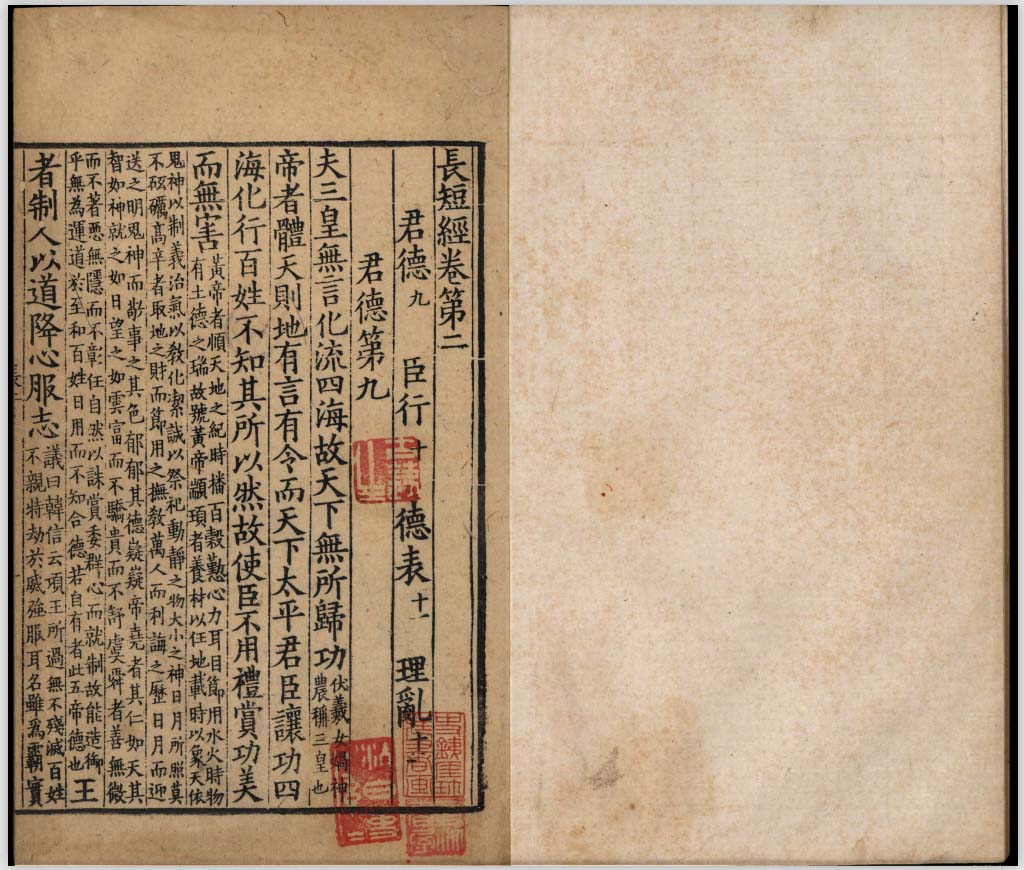 長短經卷第二
君德九 臣行十 德表十一 理亂十二
君德第九
夫三皇無言化流四海故天下無所歸功
伏羲女媧神
農稱三皇也
帝者體天則地有言有令而天下太平君臣讓功四
海化行百姓不知其所以然故使臣不用禮賞功美
而無害
黃帝者順天地之紀時播百穀懃心力耳目節用水火時物
有土德之瑞故號黃帝顓頊者養材以任地載時以象天依
鬼神以制義治氣以教化潔誠以祭祀動靜之物大小之神日月所照莫
不砥礪高辛者取地之財而節用之撫教萬人而利誨之歷日月而迎
送之明鬼神而敬事之其色郁郁其德嶷嶷帝堯者其仁如天其
智如神就之如日望之如雲富而不驕貴而不舒虞舜者善無微
而不著惡無隱而不彰任自然以誅賞委群心而就制故能造御
乎無為運道於至和百姓日用而不知合德若自有者此五帝德也
王
者制人以道降心服志
議曰韓信云項王所過無不殘滅百姓
不親特劫於威強服耳名雖為霸實